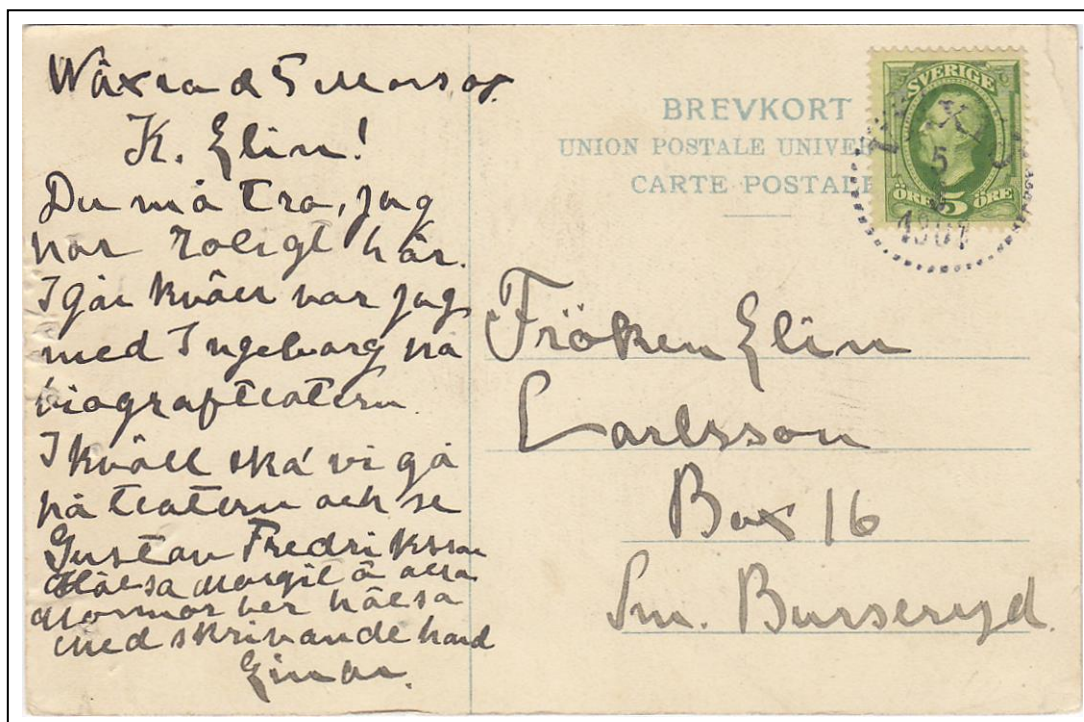 d 5 Mars 07.
K. Elin!
Du må tro, jag
har roligt här.
I går kväll var jag
med Ingeborg på
biografteatern.
I kväll ska' vi gå
på teatern och se
Gustav Fredriksson
Hälsa Margit å alla
Mormor ber hälsa
Med skrivande hand
Einar.
BREVKORT
UNION POSTALE UNIVER
CARTE POSTALE
SVERIGE
ÖRE 5 ÖRE
5
3
1907
Fröken Elin
Larlsson
Box 16
Sm. Burseryd.